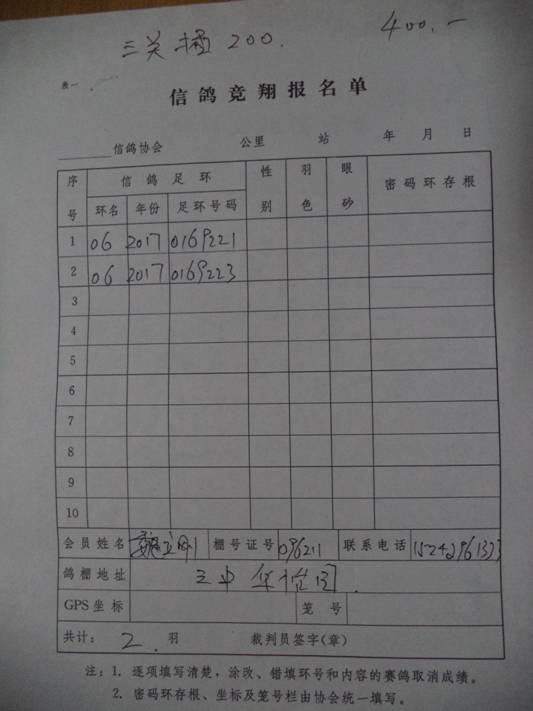 三关 200.
400.一
表一
信鸽竞翔报名单
______信鸽协会 公里 站 年 月 日
序号 信鸽足环 性别 羽色 眼砂 密码环存根
环名 年份 足环号码
1 06 2017 0169221
2 06 2017 0169223
3
4
5
6
7
8
9
10
会员姓名 棚号证号 096211 联系电话
鸽棚地址
GPS坐标 笼号
共计: 2. 羽 裁判员签字(章)
注: 1. 逐项填写清楚,涂改、错填环号和内容的赛鸽取消成绩。
2. 密码环存根、坐标及笼号栏由协会统一填写。